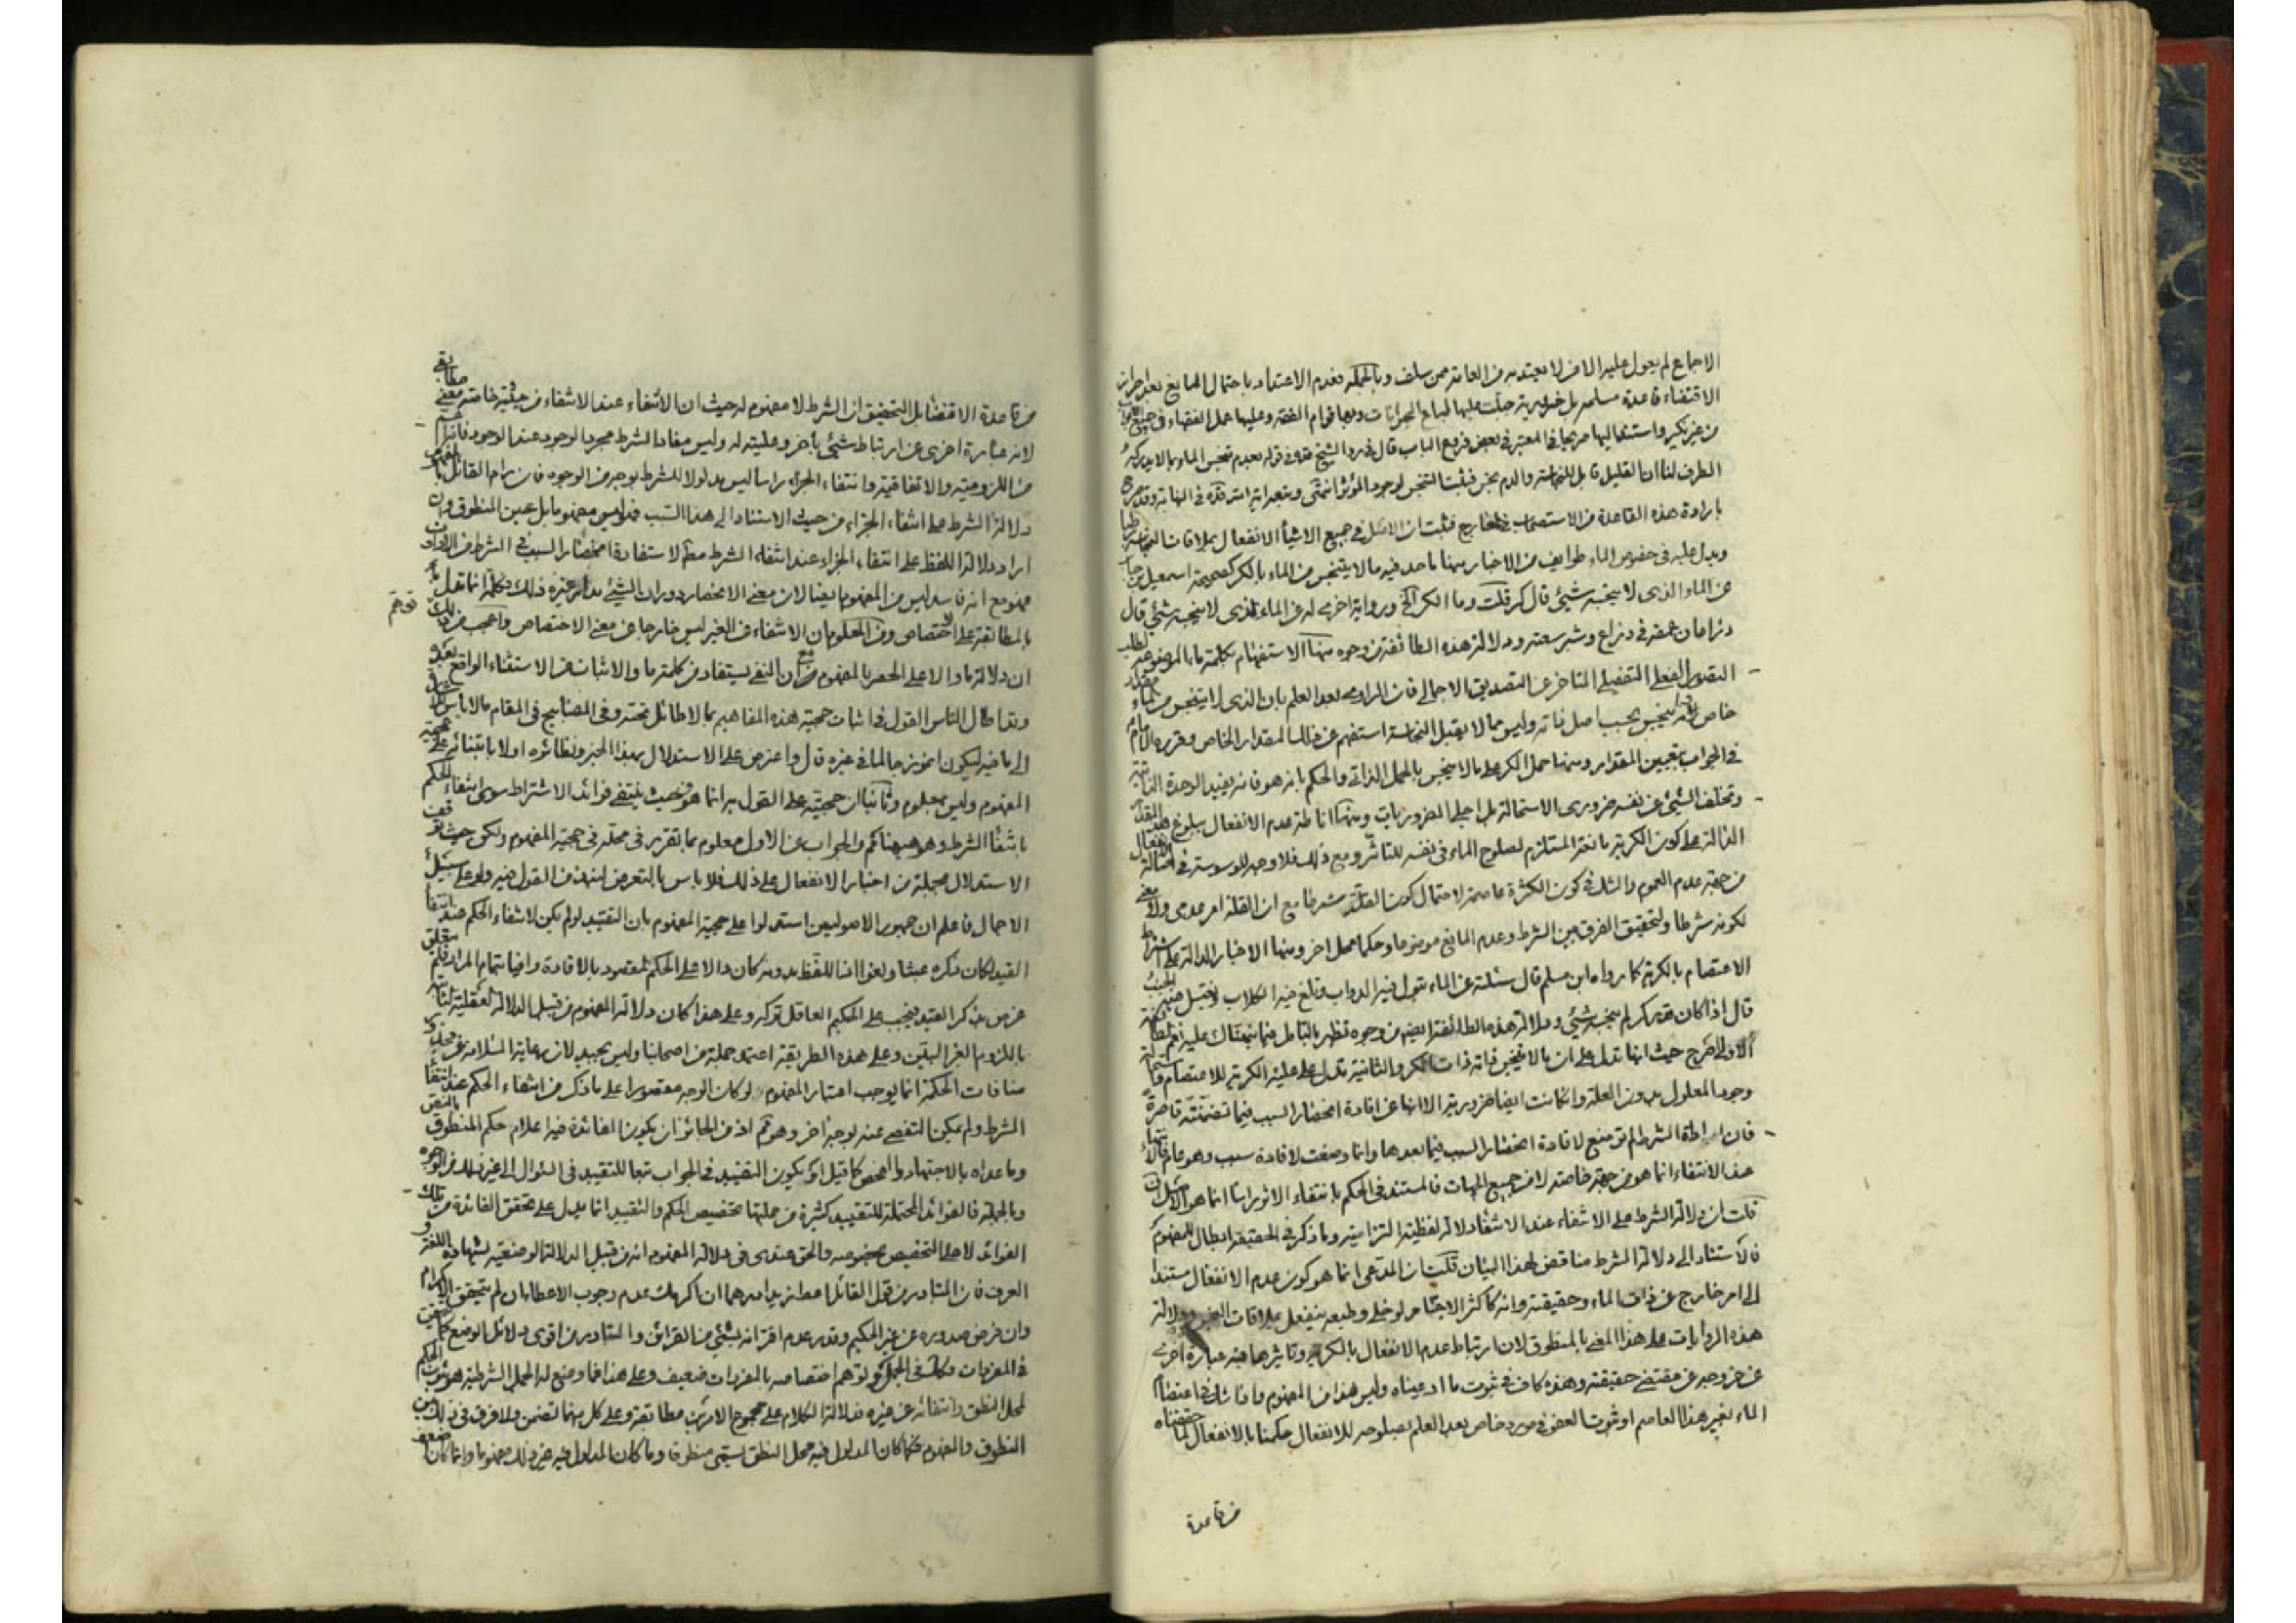 الاجماع لم يعول عليه الا من لا يعتد به من العامة ممن سلف وبالجملة فعدم الاعتداد باحتمال المانع بعد احراز
الاقتضاء قاعدة مسلمة بل ضرورية جبلت عليها طباع الحيوانات وبها قوام الفقه وعليها عمل الفقهاء في جميع
من غير نكير واستند اليها صريحا في المعتبر في بعض فروع الباب قال في رد الشيخ قده في قوله بعدم تنجس الماء بما لا يدركه
الطرف لنا ان القليل قابل للنجاسة والدم منجس فيثبت التنجس لوجود المؤثر انتهى
بارادة هذه القاعدة من الاستصحاب فثبت ان الاصل في جميع الاشيأ الانفعال بملاقات النجاسة
ويدل عليه في خصوص الماء طوايف من الاخبار منها ما حد فيه ما لا يتنجس من الماء بالكر كصحيحة اسمعيل بن جابر
عن الماء الذي لا ينجسه شيئ قال كر قلت وما الكر الخ وبرواية اخرى له عن الماء الذي لا ينجسه شيئ قال
ذراعان عمقه في ذراع وشبر سعته ودلالة هذه الطائفة من وجوه منها الاستفهام بكلمة ما الموضوعة لطلب
التصور الفعلي التفصيلي المتاخر عن التصديق الاجمالي فان الراوي بعد العلم بان الذي لا يتنجس من الماء مقدار
خاص وانه يتنجس بحسب اصل ذاته وليس مما لا يقبل النجاسة استفهم عن ذلك المقدار الخاص وقرره الامام
في الجواب بتعيين المقدار ومنها حمل الكر على ما لا ينجس بالحمل الذاتي والحكم بانه هو فانه يفيد الوحدة الذاتية
وتخلف الشيئ عن نفسه ضروري الاستحالة بل اجلى الضروريات ومنها اناطة عدم الانفعال ببلوغ هذا المقدار
الدالة على كون الكرية مانعة المستلزم لصلوح الماء في نفسه للتاثر ومع ذلك فلا وجه للوسوسة في اصالة الانفعال
من جهة عدم العموم والشك في كون الكثرة عاصمة لاحتمال كون القلة شرطا مع ان القلة امر عدمي ولا معنى
لكونه شرطا ولتحقيق الفرق بين الشرط وعدم المانع موضوعا وحكما محل اخر ومنها الاخبار الدالة على اشتراط
الاعتصام بالكرية كما رواه ابن مسلم قال سئلته عن الماء تبول فيه الدواب وتلغ فيه الكلاب ويغتسل فيه الجنب
قال اذا كان قدر كر لم ينجسه شيئ ودلالة هذه الطائفة ايضا من وجوه تظهر بالتامل فيما نبهناك عليه نعم الطائفة
الاولى اصرح حيث انها تدل على ان ما لا ينجس ذاته ذات الكر والثانية تدل على علية الكرية للاعتصام واستحالة
وجود المعلول بدون العلة وان كانت ايضا ضرورية الا انها عن افادة انحصار السبب فيما تضمنته قاصرة
فان اداة الشرط لم توضع لافادة انحصار السبب فيما بعدها وانما وضعت لافادة سببيته وهو عام فالانتفاء
عند الانتفاء انما هو من جهة خاصة لا من جميع الجهات فالمستند في الحكم بانتفاء الاثر راسا انما هو الاصل فان
قلت ان دلالة الشرط على الانتفاء عند الانتفاء دلالة لفظية التزامية وما ذكر في الحقيقة ابطال للمفهوم
فالاستناد الى دلالة الشرط مناقض لهذا البيان قلت ان المدعى انما هو كون عدم الانفعال مستندا
الى امر خارج عن ذات الماء وحقيقته وانه كاكثر الاجسام لو خلي وطبعه ينفعل بملاقات النجس ودلالة
هذه الروايات على هذا المعنى بالمنطوق لان ارتباط عدم الانفعال بالكرية وتاثيرها فيه عبارة اخرى
عن خروجه عن مقتضى حقيقته وهذه كاف في ثبوت ما ادعيناه وليس هذا من المفهوم واذا شك في اعتصام
الماء بغير هذا العاصم او ثبوت العفو في مورد خاص بعد العلم بصلوحه للانفعال حكمنا بالانفعال لما حققناه
من قاعدة
من قاعدة الاقتضأ بل التحقيق ان الشرط لا مفهوم له حيث ان الانتفاء عند الانتفاء من حيثية خاصة معنى مطابقي
لانه عبارة اخرى عن ارتباط شيئ بأخر وعليته له وليس مفاد الشرط مجرد الوجود عند الوجود فانه اعم
من اللزومية والاتفاقية وانتفاء الجزاء راسا ليس مدلولا للشرط بوجه من الوجوه فان رام القائل بالمفهوم
دلالة الشرط على انتفاء الجزاء من حيث الاستناد الى هذا السبب فهو ليس مفهوما بل عين المنطوق وان
اراد دلالة اللفظ على انتفاء الجزاء عند انتفاء الشرط مطلقا لاستفادة انحصار السبب في الشرط من الاداة
فهو مع انه فاسد ليس من المفهوم ايضا لان معنى الانحصار دوران الشيئ مدار غيره وذلك ككلمة انما تدل
بالمطابقة على الاختصاص ومن المعلوم ان الانتفاء في الغير ليس خارجا عن معنى الاختصاص واعجب من ذلك توهم
ان دلالة ما والا على الحصر بالمفهوم مع ان النفي يستفاد من كلمة ما والاثبات من الاستثناء الواقع بعده
وقد اطال الناس القول في اثبات حجية هذه المفاهيم بما لا طائل تحته وفي المصابيح في المقام ما لا باس بنقله
الى ما فيه ليكون انموزجا لما في غيره قال واعترض على الاستدلال بهذا الخبر ونظائره اولا بابتنائه على حجية
المفهوم وليس بمعلوم وثانيا ان حجيته على القول به انما هو حيث ينتفي فوائد الاشتراط سوى انتفاء الحكم
بانتفأ الشرط وهو هيهنا ثم والجواب عن الاول معلوم بما تقرر في محله في حجية المفهوم ولكن حيث توقف
الاستدلال بجملة من اخبار الانفعال على ذلك فلا باس بالتعرض لنبذ من القول فيه ولو على سبيل
الاجمال فاعلم ان جمهور الاصوليين استدلوا على حجية المفهوم بان التقييد لو لم يكن لانتفاء الحكم عند انتفأ
القيد لكان ذكره عبثا ولغوا اذ اللفظ بدونه كان دالا على الحكم المقصود بالافادة وافيا بتمام المراد فلم يتعلق
غرض بذكر القيد فيجب على الحكيم العاقل تركه وعلى هذا كان دلالة المفهوم من قبيل الدلالة العقلية الثابتة
باللزوم الغير البين وعلى هذه الطريقة اعتمد جملة من اصحابنا وليس بجيد لان رعاية السلامة عن محذور
منافات الحكمة انما يوجب اعتبار المفهوم لو كان الوجه مقصورا على ما ذكر من انتفاء الحكم عند انتفأ
الشرط ولم يمكن التفصي عنه بوجه اخر وهو ثم اذ من الجائز ان يكون الفائدة فيه اعلام حكم المنطوق بالنص
وما عداه بالاجتهاد والفحص كما قيل او يكون التقييد في الجواب تبعا للتقييد في السؤال الى غير ذلك من الوجوه
وبالجملة فالفوائد المحتملة للتقييد كثيرة من جملتها تخصيص الحكم والتقييد انما يدل على تحقق الفائدة من تلك
الفوائد لا على التخصيص بخصوصه والحق عندي في دلالة المفهوم انه من قبيل الدلالة الوضعية بشهادة اللغة و
العرف فان المتبادر من قول القائل اعط زيدا درهما ان اكرمك عدم وجوب الاعطاء ان لم يتحقق الاكرام
وان فرض صدوره عن غير الحكيم وقدر عدم اقترانه بشيئ من القرائن والتبادر من اقوى دلائل الوضع كما حقق
في المفردات فكذا في الجمل وتوهم اختصاصه بالمفردات ضعيف وعلى هذا فما وضع له الجمل الشرطية هو ثبوت الحكم
لمحل النطق وانتفائه عن غيره فدلالة الكلام على مجموع الامرين مطابقة وعلى كل منهما تضمن ولا فرق في ذلك بين
المنطوق والمفهوم فكما كان المدلول فيه محل النطق يسمى منطوقا وما كان المدلول فيه غير ذلك مفهوما وانما كان